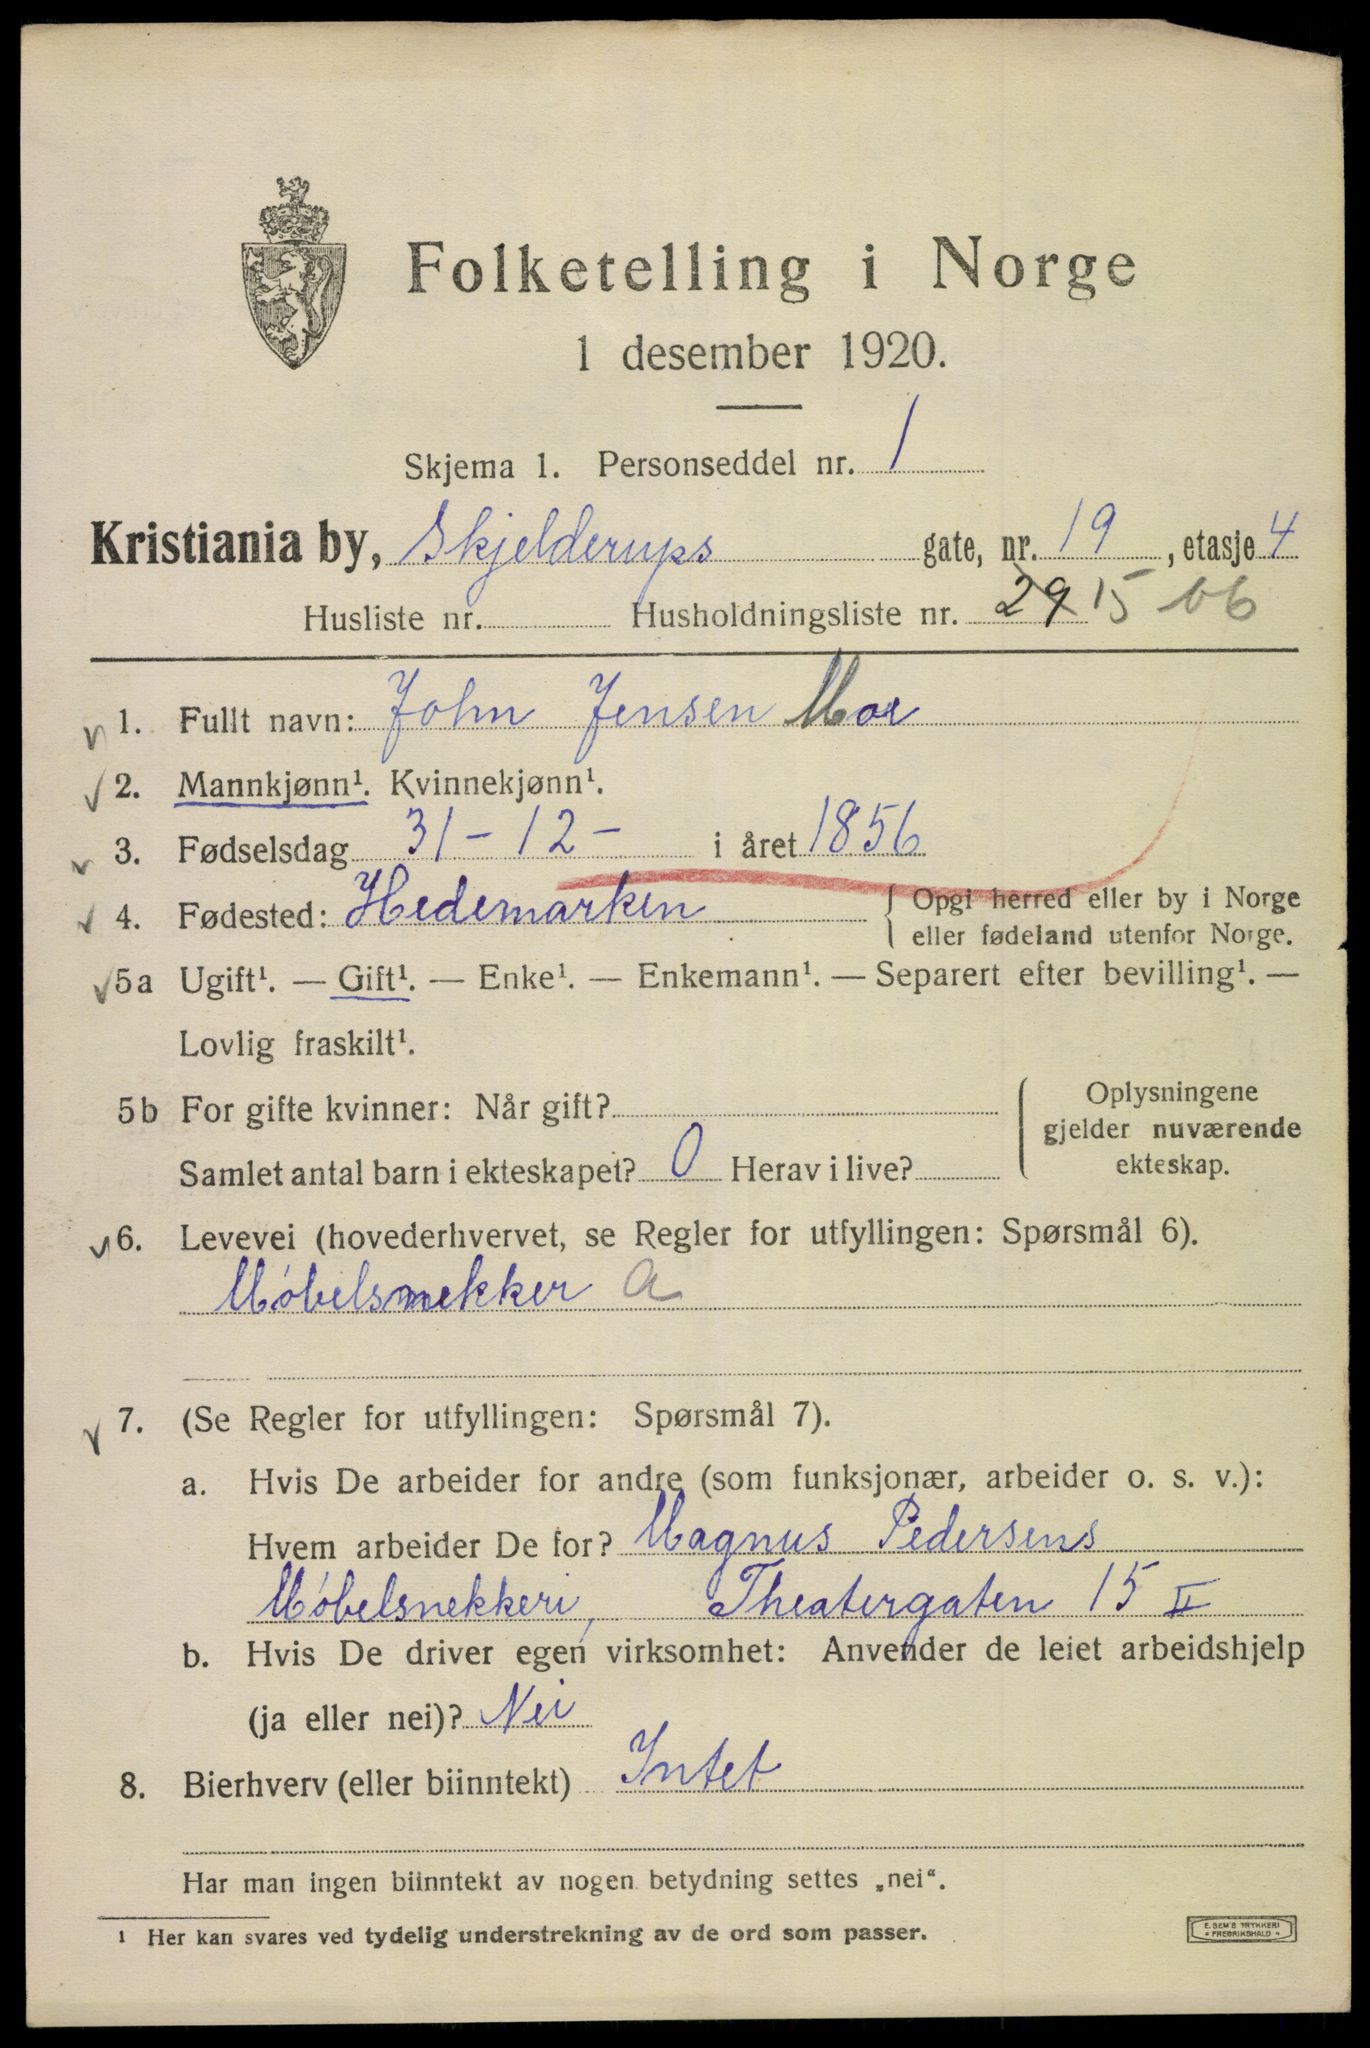 Folketelling i Norge
1 desember 1920.
Skjema 1. Personseddel nr. 1
Kristiania by, Skjelderups gate, nr. 19, etasje 4
Husliste nr. Husholdningsliste nr. 29 15 06
1. Fullt navn: John Jensen Moe
2. Mannkjønn¹. Kvinnekjønn¹.
3. Fødselsdag 31-12- i året 1856
4. Fødested: Hedemarken { Opgi herred eller by i Norge
eller fødeland utenfor Norge.
5a Ugift¹. — Gift¹. — Enke¹. — Enkemann¹. — Separert efter bevilling¹. —
Lovlig fraskilt¹.
5b For gifte kvinner: Når gift?
Samlet antal barn i ekteskapet? 0 Herav i live?
Oplysningene
gjelder nuværende
ekteskap.
6. Levevei (hovederhvervet, se Regler for utfyllingen: Spørsmål 6).
Møbelsnekker a
7. (Se Regler for utfyllingen: Spørsmål 7).
a. Hvis De arbeider for andre (som funksjonær, arbeider o. s. v.):
Hvem arbeider De for? Magnus Pedersens
Møbelsnekkeri, Theatergaten 15 II
b. Hvis De driver egen virksomhet: Anvender de leiet arbeidshjelp
(ja eller nei)? Nei
8. Bierhverv (eller biinntekt) Intet
Har man ingen biinntekt av nogen betydning settes „nei“.
1 Her kan svares ved tydelig understrekning av de ord som passer.
E. SEM'S TRYKKERI
FREDRIKSHALD